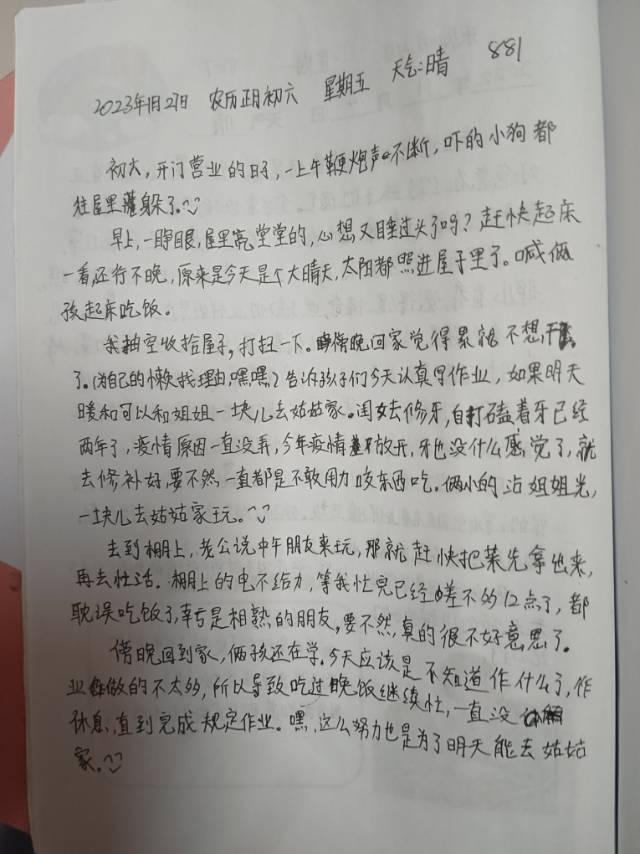 881
2023年1月27日 农历正月初六 星期五 天气:晴
初六,开门营业的日子,一上午鞭炮声不断,吓的小狗都
往屋里藏躲了。
早上,一睁眼,屋里亮堂堂的,心想又睡过头了吗?赶快起床
一看,还行不晚,原来是今天是个大晴天,太阳都照进屋子里了。喊俩
孩起床吃饭。
我抽空收拾屋子,打扫一下。傍晚回家觉得累就不想干
了。(为自己的懒找理由,嘿嘿)告诉孩子们今天认真写作业,如果明天
暖和可以和姐姐一块儿去姑姑家。闺女去修牙,自打磕着牙已经
两年了,疫情原因一直没弄,今年疫情放开,牙也没什么感觉了,就
去修补好,要不然一直都是不敢用力咬东西吃。俩小的沾姐姐光,
一块儿去姑姑家玩。
去到棚上,老公说中午朋友来玩,那就赶快把菜先拿出来,
再去忙活。棚上的电不给力,等我忙完已经差不多12点了,都
耽误吃饭了,幸亏是相熟的朋友,要不然真的很不好意思了。
傍晚回到家,俩孩还在学。今天应该是不知道作什么了,作
业做的不太多,所以导致吃过晚饭继续忙,一直没
休息,直到完成规定作业。嘿,这么努力也是为了明天能去姑姑
家。